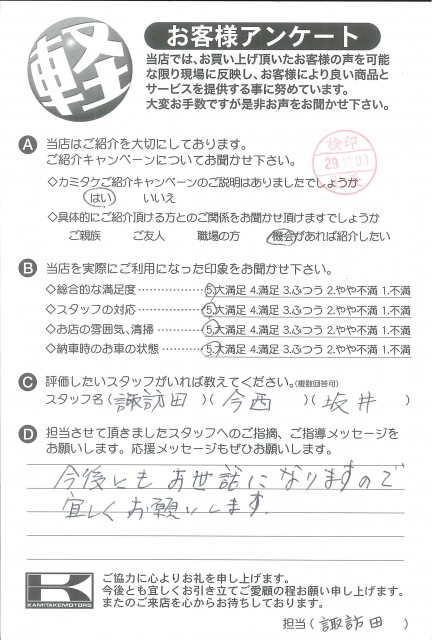 軽
お客様アンケート
当店では、お買い上げ頂いたお客様の声を可能
な限り現場に反映し、お客様により良い商品と
サービスを提供する事に努めています。
大変お手数ですが是非お声をお聞かせ下さい。
A 当店はご紹介を大切にしております。
ご紹介キャンペーンについてお聞かせ下さい。
検印
29.10.09
◇カミタケご紹介キャンペーンのご説明はありましたでしょうか
はい いいえ
◇具体的にご紹介頂ける方とのご関係をお聞かせ頂けますでしょうか
ご親族 ご友人 職場の方 機会があれば紹介したい
B 当店を実際にご利用になった印象をお聞かせ下さい。
◇総合的な満足度………………5.大満足 4.満足 3.ふつう 2.やや不満 1.不満
◇スタッフの対応………………5.大満足 4.満足 3.ふつう 2.やや不満 1.不満
◇お店の雰囲気、清掃…………5.大満足 4.満足 3.ふつう 2.やや不満 1.不満
◇納車時のお車の状態…………5.大満足 4.満足 3.ふつう 2.やや不満 1.不満
C 評価したいスタッフがいれば教えてください。(複数回答可)
スタッフ名(諏訪田)(今西)(坂井)
D 担当させて頂きましたスタッフへのご指摘、ご指導メッセージを
お願いします。応援メッセージもぜひお願いします。
今後ともお世話になりますので
宜しくお願いします.
K
KAMITAKEMOTORS
ご協力に心よりお礼を申し上げます。
今後とも宜しくお引き立てご愛顧の程お願い申し上げます。
またのご来店を心からお待ちしております。
担当(諏訪田)